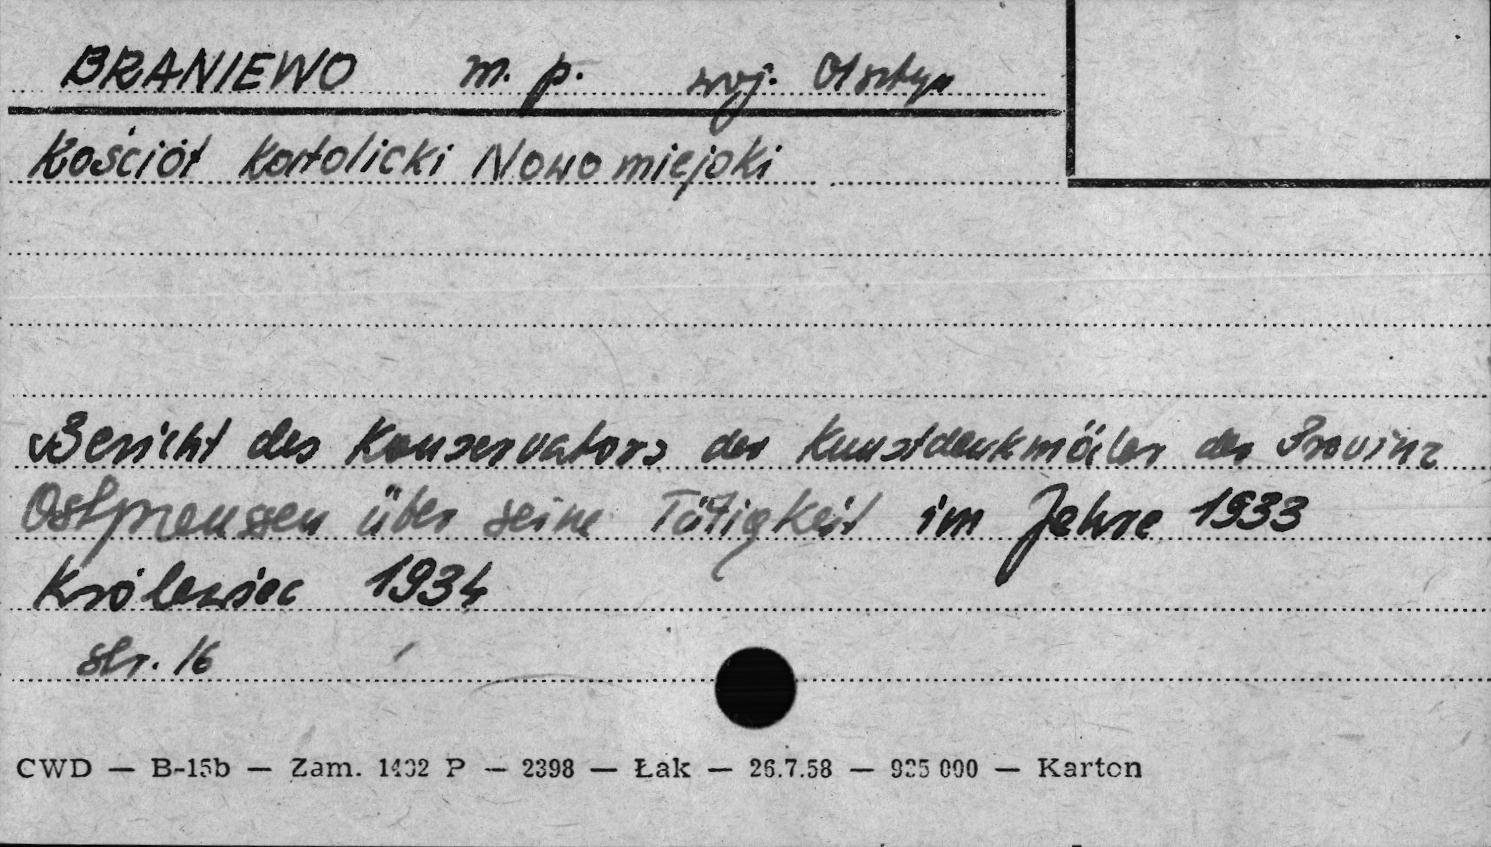 BRANIEWO m. p. woj. Olsztyn
Kościół katolicki Nowomiejski
Bericht des Konservators der Kunstdenkmäler der Provinz
Ostpreussen über seine Tätigkeit im Jahre 1933
Królewiec 1934
str. 16
CWD — B-15b — Zam. 1432 P — 2398 — Łak — 26.7.58 — 925 000 — Karton